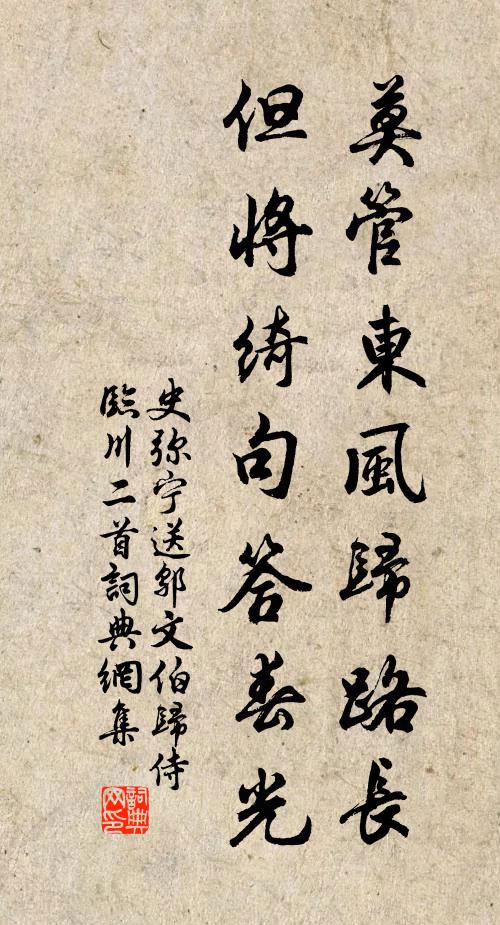 莫管東風歸路長
但將綺句答春光
史弥宁送鄔文伯歸侍
臨川二首詞典網集
詞典網印